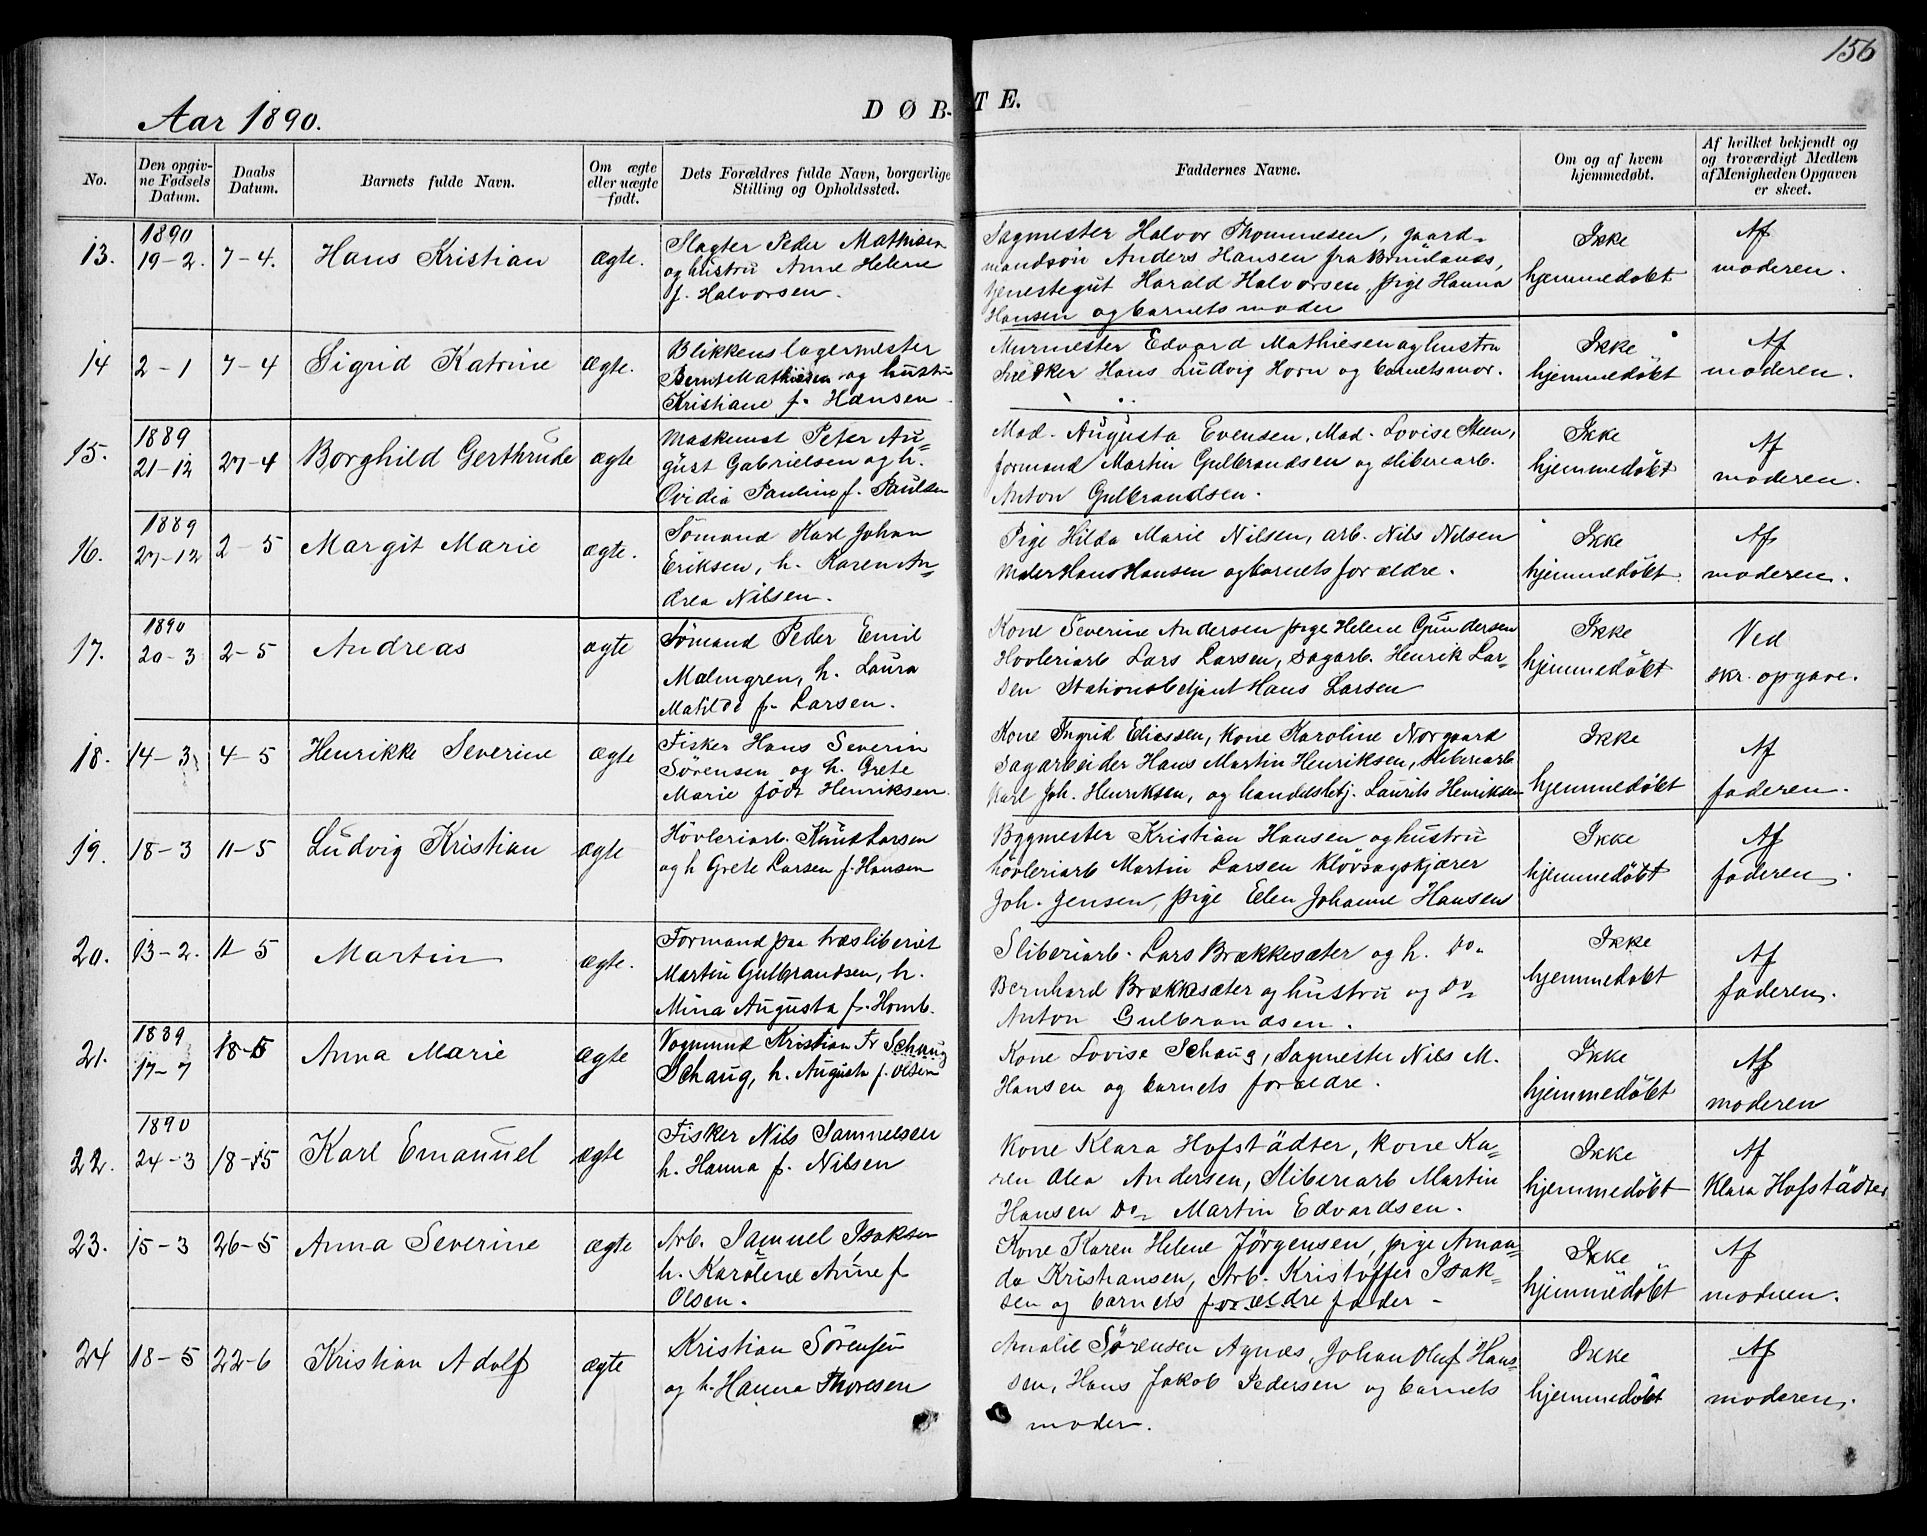 156
Aar 1890.
DØBTE.
No.
Den opgiv-
ne Fødsels
Datum.
Daabs
Datum.
Barnets fulde Navn.
Om ægte
eller uægte
født.
Dets Forældres fulde Navn, borgerlige
Stilling og Opholdssted.
Faddernes Navne.
Om og af hvem
hjemmedøbt.
Af hvilket bekjendt og
og troværdigt Medlem
af Menigheden Opgaven
er skeet.
13.
1890
19-2.
7-4.
Hans Kristian
ægte.
Slagter Peder Mathisen
og hustru Anne Helene
f. Halvorsen.
Sagmester Halvor Thommesen, gaard-
mandsøn Anders Hansen fra Brunlanes,
tjenestegut Harald Halvorsen, pige Hanna
Hansen og barnets moder
Ikke
hjemmedøbt
Af
moderen.
14
2-1
7-4
Sigrid Katrine
ægte.
Blikkenslagermester
Bernt Mathiesen og hustru
Kristiane f. Hansen
Murmester Edvard Mathiesen og hustru
Snedker Hans Ludvig Horn og barnets mor.
Ikke
hjemmedøbt
Af
moderen.
15.
1889
21-12
27-4
Borghild Gerthrude
ægte
Maskinist Peter Au-
gust Gabrielsen og h.
Ovidia Pauline f. Paulsen
Mad. Augusta Evensen, Mad. Lovise Steen,
formand Martin Gulbrandsen og sliberiarb.
Anton Gulbrandsen.
Ikke
hjemmedøbt
Af
moderen.
16.
1889
27-12
2-5
Margit Marie
ægte.
Sømand Karl Johan
Eriksen, h. Karen An-
drea Nilsen.
Pige Hilda Marie Nilsen, arb. Nils Nilsen
Maler Hans Hansen og barnets forældre.
Ikke
hjemmedøbt
Af
moderen.
17.
1890
20-3
2-5
Andreas
ægte
Sømand Peder Emil
Malmgren, h. Laura
Matilde f. Larsen.
Kone Severine Andersen pige Helene Gundersen
Høvleriarb Lars Larsen, Sagarb. Henrik Lar-
sen Stationsbetjent Hans Larsen
Ikke
hjemmedøbt
Ved
skr. opgave.
18.
14-3
4-5
Henrikke Severine
ægte
Fisker Hans Severin
Sørensen og h. Grete
Marie født Henriksen.
Kone Ingrid Eliassen, kone Karoline Norgaard
Sagarbeider Hans Martin Henriksen, sliberiarb
Karl Joh. Henriksen, og handelsbetj. Laurits Henriksen
Ikke
hjemmedøbt
Af
faderen.
19.
18-3
11-5
Ludvig Kristian
ægte
Høvleriarb. Knut Larsen
og h Grete Larsen f. Hansen
Bygmester Kristian Hansen og hustru
høvleriarb Martin Larsen kløvsagskjærer
Joh. Jensen, pige Elen Johanne Hansen
Ikke
hjemmedøbt
Af
faderen.
20.
13-2.
11-5
Martin
ægte.
Formand paa træsliberiet
Martin Gulbrandsen, h.
Mina Augusta f. Homb.
Sliberiarb. Lars Brækkesæter og h. Do-
Bernhard Brækkesæter og hustru og Do-
Anton Gulbrandsen.
Ikke
hjemmedøbt
Af
faderen.
21.
1889
17-7
18-5
Anna Marie
ægte
Vogmand Kristian Fr Schaug
Schaug, h. Augusta f. Olsen
Kone Lovise Schaug, Sagmester Nils M.
Hansen og barnets forældre.
Ikke
hjemmedøbt
Af
moderen
22.
1890
24-3
18-5
Karl Emanuel
ægte
Fisker Nils Samuelsen
h. Hanna f. Nilsen
Kone Klara Hofstädter, kone Ka-
ren Olea Andersen, Sliberiarb Martin
Hansen Do- Martin Edvardsen.
Ikke
hjemmedøbt
Af
Klara Hofstädter
23.
15-3
26-5
Anna Severine
ægte
Arb. Samuel Isaksen
h. Karoline Anne f
Olsen.
Kone Karen Helene Jørgensen, pige Aman-
da Kristiansen, Arb. Kristoffer Isak-
sen og barnets forældre fader -
Ikke
hjemmedøbt
Af
moderen.
24
18-5
22-6
Kristian Adolf
ægte
Kristian Sørensen
og h. Hanna Thoresen
Amalie Sørensen Agnæs, Johan Oluf Han-
sen, Hans Jakob Pedersen og barnets
moder.
Ikke
hjemmedøbt
Af
moderen.